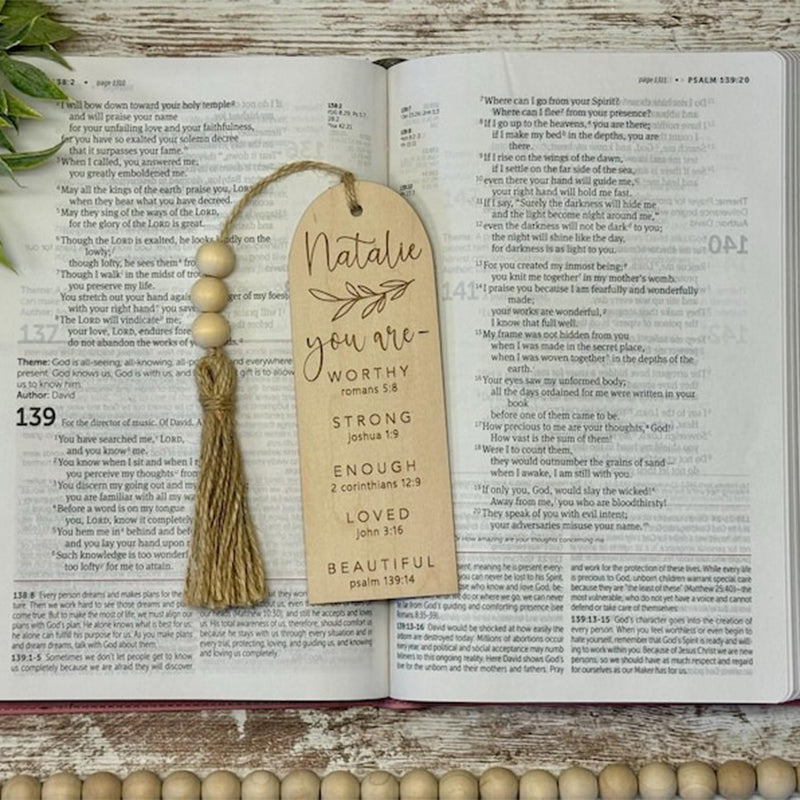 38:2 • page 1310
I will bow down toward your holy temple
and will praise your name
for your unfailing love and your faithfulness,
for you have so exalted your solemn decree
that it surpasses your fame.
When I called, you answered me;
you greatly emboldened me.
May all the kings of the earth praise you, LORD
when they hear what you have decreed.
May they sing of the ways of the LORD,
for the glory of the LORD is great.
Though the LORD is exalted, he looks kindly on the
lowly;
though lofty, he sees them
Though I walk in the midst of
you preserve my life.
You stretch out your hand again
with your right hand you save
The LORD will vindicate me;
your love, LORD, endures
do not abandon the works of
137
Theme: God is all-seeing, all-knowing, everywhere
present. God knows us, God is with us, and gift is to allow
us to know him.
Author: David
139 For the director of music. Of David. A
1 You have searched me, LORD,
and you know me.
2 You know when I sit and when I
you perceive my thoughts from
3 You discern my going out and my
you are familiar with all my
4 Before a word is on my tongue
you, LORD, know it completely
5 You hem me in behind and before
and you lay your hand upon
6 Such knowledge is too wonderful
too lofty for me to attain.
138:8 Every person dreams and makes plans for the
ture. Then we work hard to see those dreams and plans
come true. But to make the most of life, we must align our
plans with God's plan. He alone knows what is best for us;
he alone can fulfill his purpose for us. As you make plans
and dream dreams, talk with God about them.
139:1-5 Sometimes we don't let people get to know
us completely because we are afraid they will discover
(Matthew 10:30), and still he accepts and loves
us. His total awareness of us, therefore, should comfort us
because he stays with us through every situation and in
every trial, protecting, loving, and guiding us. He knows
and loves us completely.
Natalie
you are-
WORTHY
romans 5:8
STRONG
joshua 1:9
ENOUGH
2 corinthians 12:9
LOVED
john 3:16
BEAUTIFUL
psalm 139:14
page 1311 • PSALM 139:20
7 Where can I go from your Spirit?
Where can I flee from your presence?
8 If I go up to the heavens, you are there;
if I make my bed in the depths, you are
there.
9 If I rise on the wings of the dawn,
if I settle on the far side of the sea,
10 even there your hand will guide me,
your right hand will hold me fast.
11 If I say, "Surely the darkness will hide me
and the light become night around me,"
12 even the darkness will not be dark to you;
the night will shine like the day,
for darkness is as light to you.
13 For you created my inmost being;
you knit me together in my mother's womb.
14 I praise you because I am fearfully and wonderfully
made;
your works are wonderful,
I know that full well.
15 My frame was not hidden from you
when I was made in the secret place,
when I was woven together in the depths of the
earth.
16 Your eyes saw my unformed body;
all the days ordained for me were written in your
book
before one of them came to be.
17 How precious to me are your thoughts, God!
How vast is the sum of them!
18 Were I to count them,
they would outnumber the grains of sand—
when I awake, I am still with you.
19 If only you, God, would slay the wicked!
Away from me, you who are bloodthirsty!
20 They speak of you with evil intent;
your adversaries misuse your name.
Or How amazing are your thoughts concerning me
meaning he is present every-
you can never be lost to his Spirit.
who know and love God, be-
do or where we go, we can never
God's guiding and comforting presence (see
Romans 8:35-39).
139:13-16 David would be shocked at how easily the
are destroyed today. Millions of abortions occur
every year, and political and social acceptance may numb
to this ongoing reality. Here David shows God's
love for the unborn and their mothers and fathers. Pray
and work for the protection of these lives. While every life
is precious to God, unborn children warrant special care
because they are "the least of these" (Matthew 25:40)—the
most vulnerable, who do not yet have a voice and cannot
defend or take care of themselves.
139:13-15 God's character goes into the creation of
every person. When you feel worthless or even begin to
hate yourself, remember that God's Spirit is ready and will-
ing to work within you. Because of Jesus Christ we are new
persons, so we should have as much respect and regard
for ourselves as our Maker has for us.